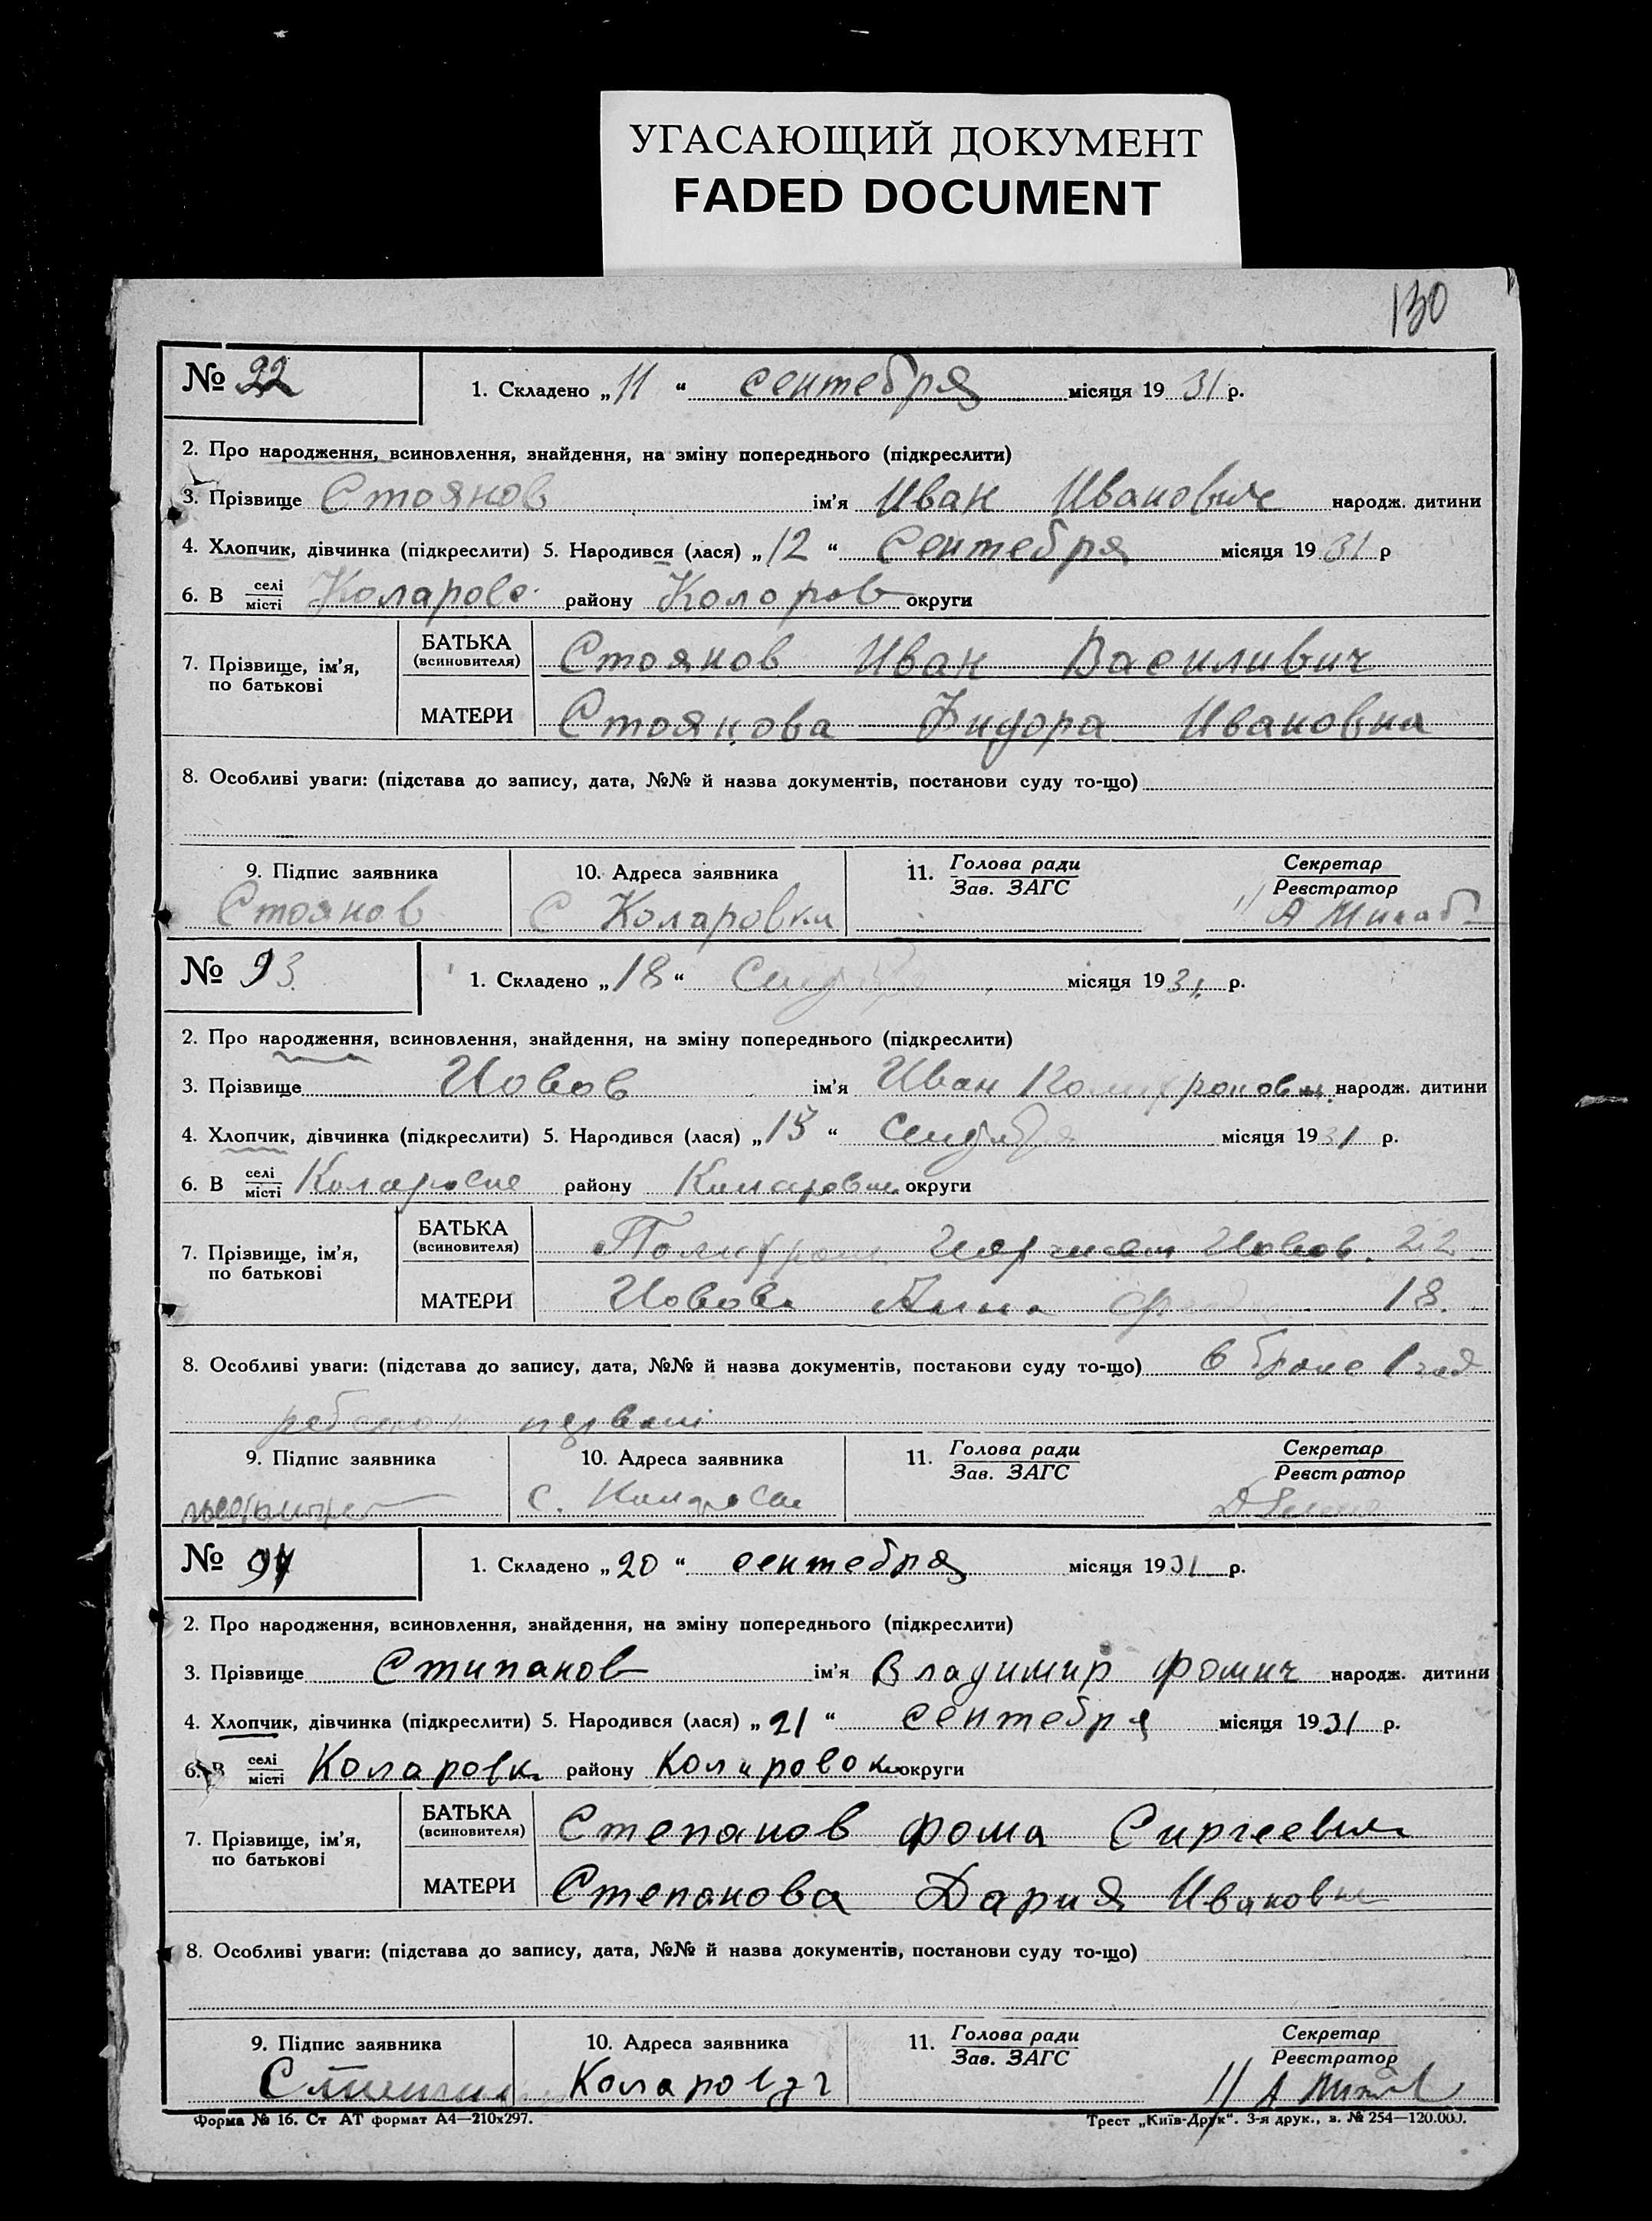 УГАСАЮЩИЙ ДОКУМЕНТ
FADED DOCUMENT
130
№ 22
1. Складено „ 11 “ сентебря місяця 19 31 р.
2. Про народження, всиновлення, знайдення, на зміну попереднього (підкреслити)
3. Прізвище Стоянов ім’я Иван Иванович народж. дитини
4. Хлопчик, дівчинка (підкреслити) 5. Народився (лася) „ 12 “ Сентебря місяця 19 31 р
6. В селі/місті Коларово району Колоров округи
7. Прізвище, ім’я, по батькові
БАТЬКА (всиновителя) Стоянов Иван Василивич
МАТЕРИ Стоянова Фидора Ивановна
8. Особливі уваги: (підстава до запису, дата, №№ й назва документів, постанови суду то-що)
9. Підпис заявника 10. Адреса заявника 11. Голова ради/Зав. ЗАГС Секретар/Реєстратор
Стоянов С Коларовка А
№ 93
1. Складено „ 18 “ місяця 19 31. р.
2. Про народження, всиновлення, знайдення, на зміну попереднього (підкреслити)
3. Прізвище Иовов ім’я Иван народж. дитини
4. Хлопчик, дівчинка (підкреслити) 5. Народився (лася) „ 15 “ місяця 19 31 р.
6. В селі/місті Коларовке району округи
7. Прізвище, ім’я, по батькові
БАТЬКА (всиновителя) Иовов. 22
МАТЕРИ Иовова Анна 18.
8. Особливі уваги: (підстава до запису, дата, №№ й назва документів, постанови суду то-що) в браке 1 год
ребенок
9. Підпис заявника 10. Адреса заявника 11. Голова ради/Зав. ЗАГС Секретар/Реєстратор
с.
№ 94
1. Складено „ 20 “ сентебря місяця 19 31 р.
2. Про народження, всиновлення, знайдення, на зміну попереднього (підкреслити)
3. Прізвище Стипанов ім’я Владимир Фомич народж. дитини
4. Хлопчик, дівчинка (підкреслити) 5. Народився (лася) „ 21 “ сентебря місяця 19 31 р.
6. В селі/місті Коларовка району округи
7. Прізвище, ім’я, по батькові
БАТЬКА (всиновителя) Степанов Фома Сиргеевич
МАТЕРИ Степанова Дария Ивановна
8. Особливі уваги: (підстава до запису, дата, №№ й назва документів, постанови суду то-що)
9. Підпис заявника 10. Адреса заявника 11. Голова ради/Зав. ЗАГС Секретар/Реєстратор
А
Форма № 16. Ст АТ формат А4—210х297. Трест „Київ-Друк“. 3-я друк., з. № 254—120.000.